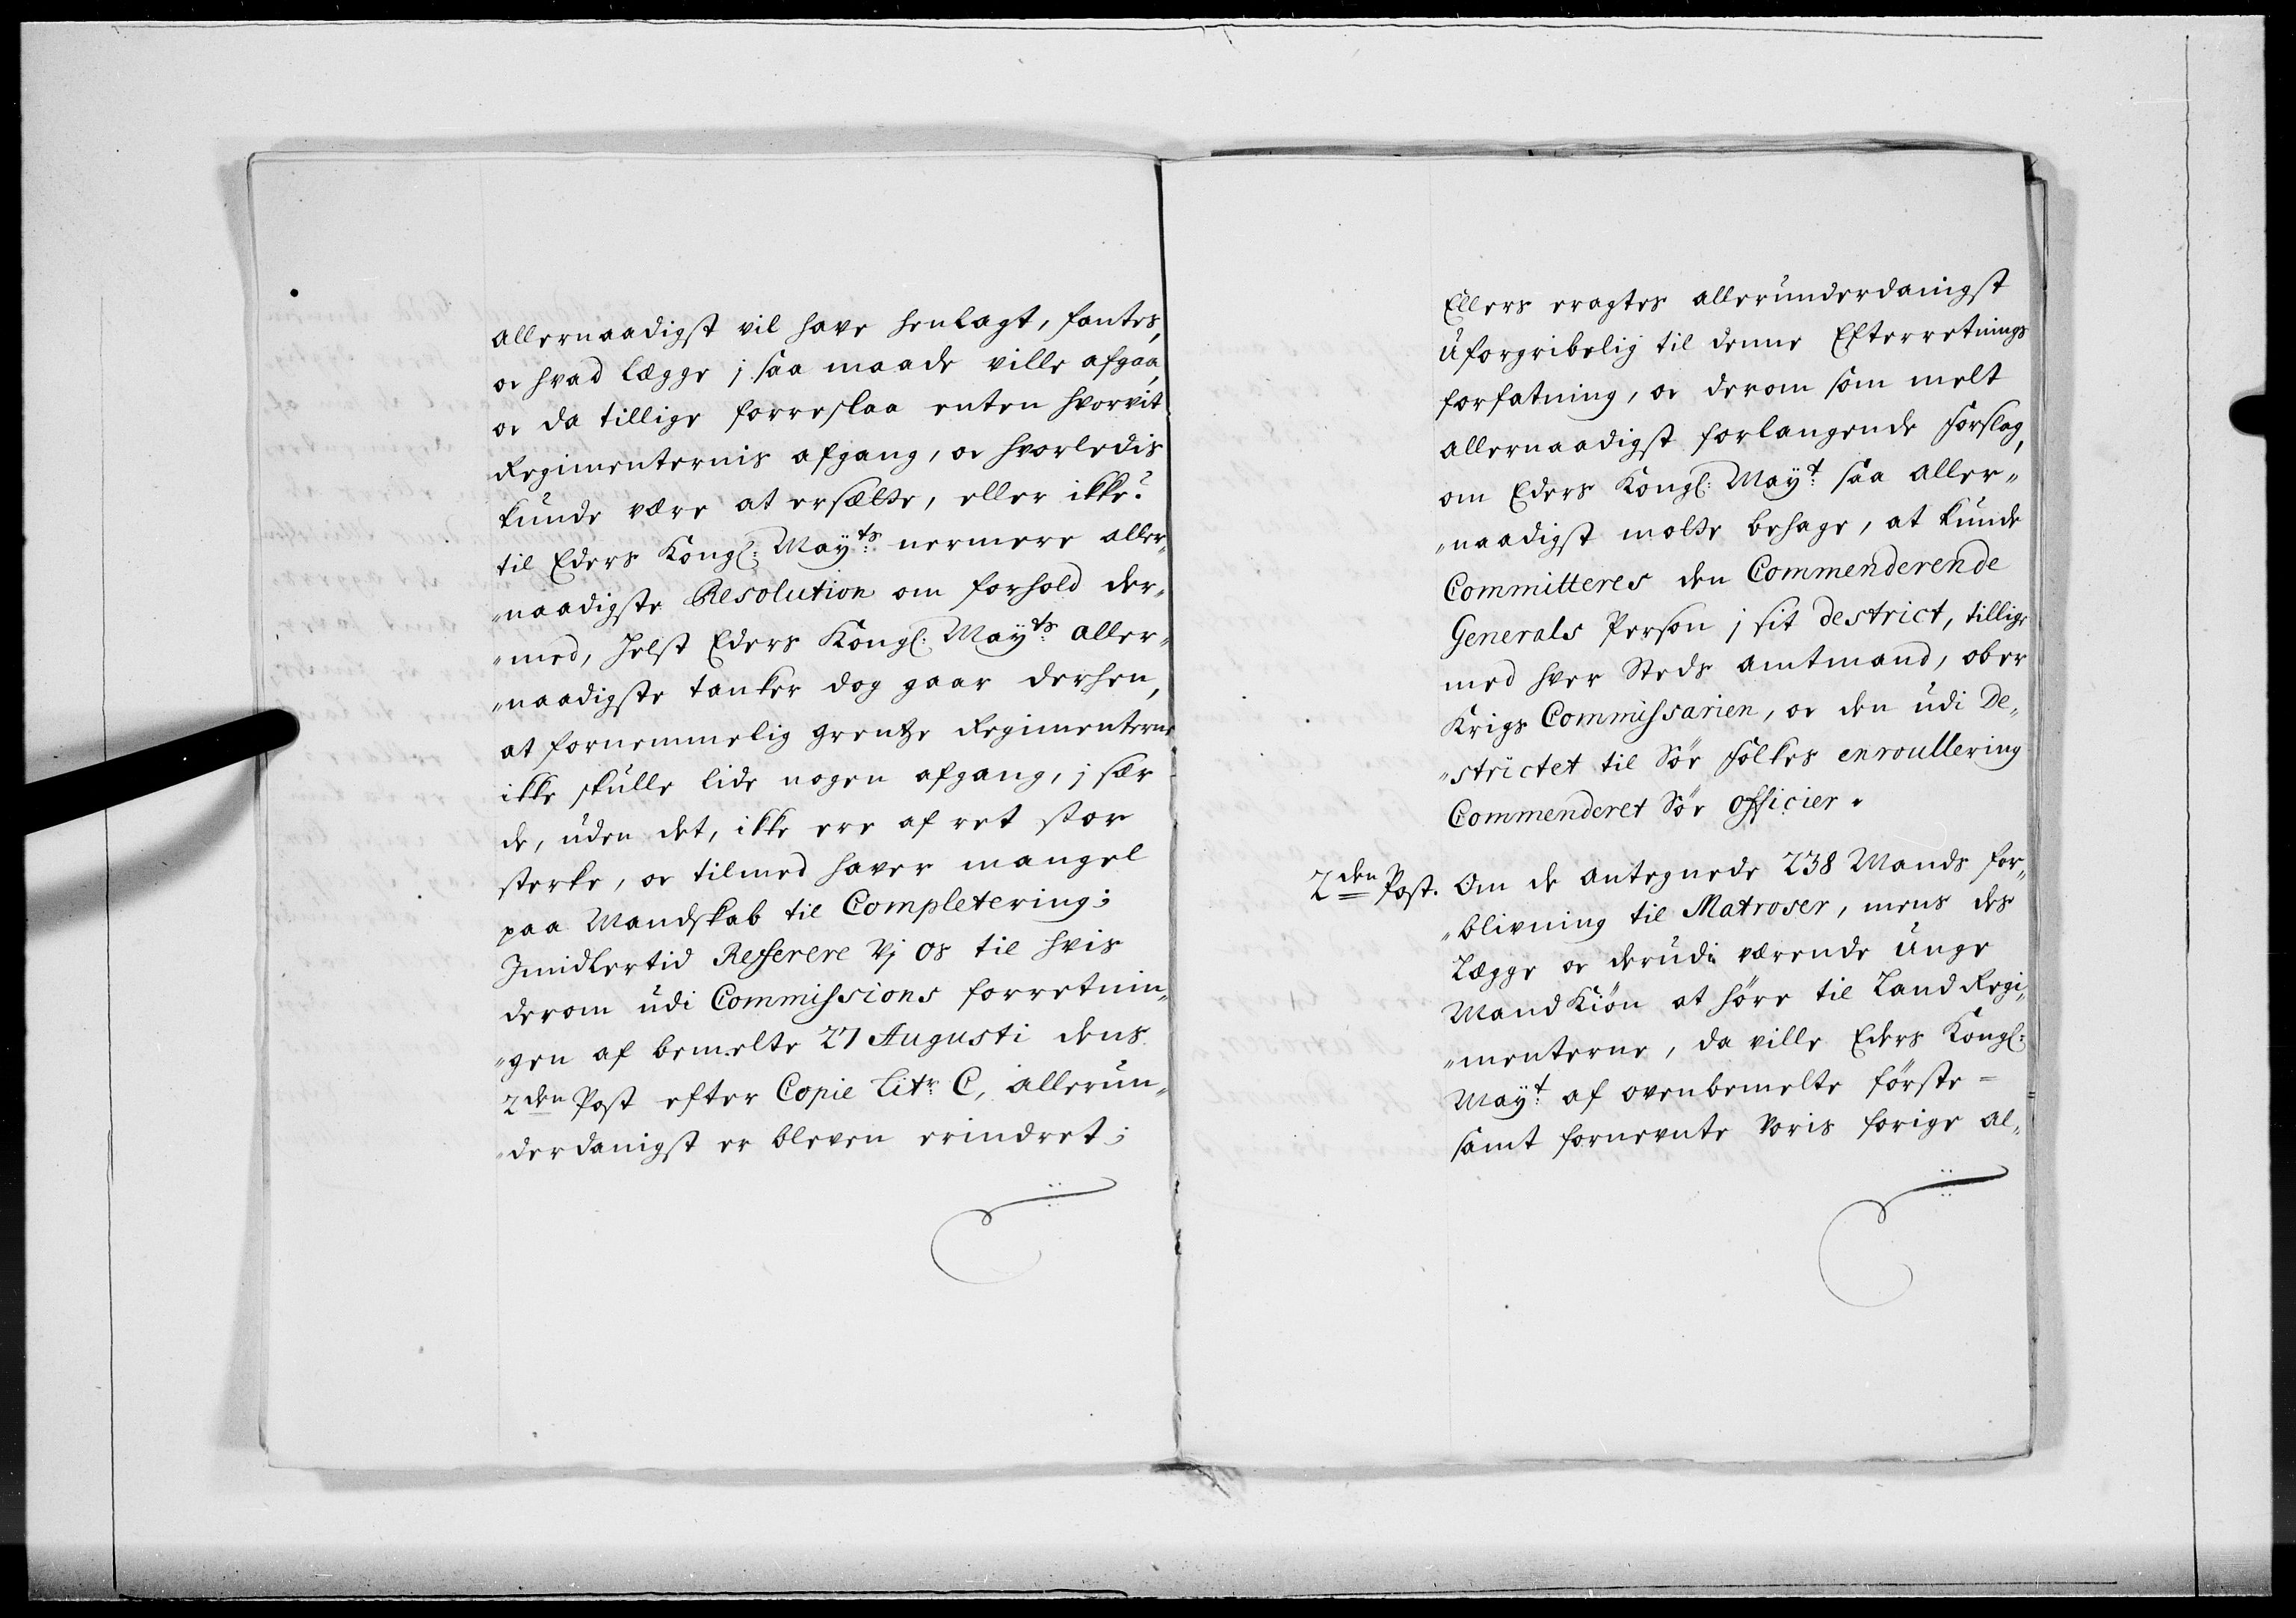 allernaadigst vil have henlagt, fantes,
oc hvad Lægge j saa maade ville afgaa,
oc da tillige forreslaa enten hvorvit
Regimenternis afgang, oc hvorledis
kunde være at ersætte, eller ikke?
til Eders Kongl: Mayts: nermere aller„
„naadigste Resolution om forhold der„
„med, helst Eders Kongl: Mayts: aller„
„naadigste tanker dog gaar derhen,
at fornemmelig grentze Regimenterne
ikke skulle lide nogen afgang, j sær
de, uden det, ikke ere af ret stor
sterke, oc tilmed haver mangel
paa Mandskab til Completering;
Jmidlertid Refferere Vj os til hvis
derom udi Commissions forretnin„
„gen af bemelte 27 Augusti dens
2den Post efter Copie Litr: C, allerun„
„derdanigst er bleven erindret;
Ellers eragtes allerunderdanigst
uforgribelig til denne Efterretnings
forfatning, oc derom som melt
allernaadigst forlangende Forslag,
om Eders Kongl: Mayt: saa aller„
„naadigst motte behage, at kunde
Committeres den Commenderende
Generals Person j sit destrict, tillige
med hver Steds amtmand, ober
Krigs Commissarien, oc den udi De„
„strictet til Söe Folkes enroullering
Commenderet Söe officier.
2den Post. Om de antegnede 238 Mands for„
„blivning til Matroser, mens des
Lægge oc derudi værende unge
Mand Kiön at höre til Land Regi„
„menterne, da ville Eders Kongl:
Mayt: af ovenbemelte förste=
samt fornevnte Voris forige al„